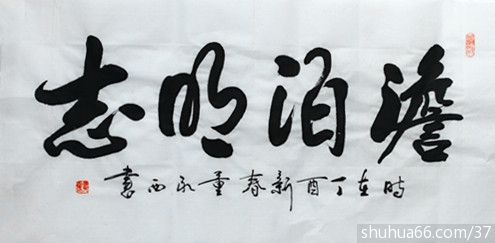 澹泊明志
時在丁酉新春董永西書
shuhua66.com/37